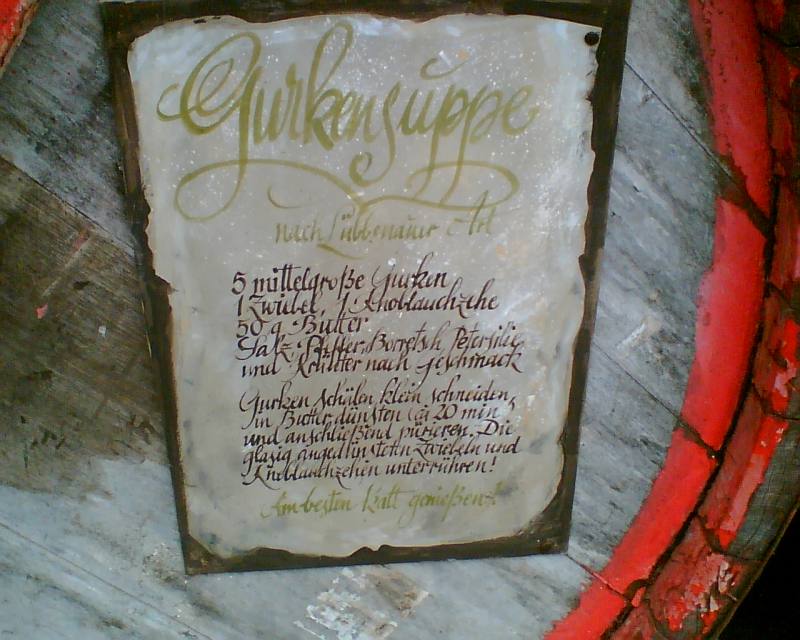 Gurkensuppe
nach Lübbenauer Art
5 mittelgroße Gurken
1 Zwiebel, 1 Knoblauchzehe
50 g Butter
Salz, Pfeffer, Borretsch, Petersilie
und Kräuter nach Geschmack
Gurken schälen klein schneiden,
in Butter dünsten ca 20 min,
und anschließend pürieren. Die
glasig angedünsteten Zwiebeln und
Knoblauchzehen unterrühren!
Am besten Kalt genießen!